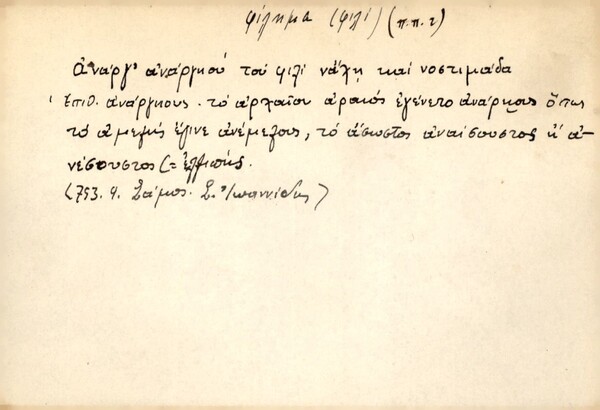 φίλημα (φιλί) (π.π.2)
ἀναργ' ἀνάργκού τοὺ φιλὶ νἄχῃ καὶ νοστιμάδα
Ἐπιθ. ἀνάργκους. τὸ ἀρχαῖον ἀραιός ἐγένετο ἀνάργκους ὅπως
τὸ ἀμελής ἔγινε ἀνέμελους, τὸ ἄσωστος ἀναίσουστος κ' ἀ-
νέσουστος (= ἐλλιπής.
(753. 9. Σάμος. Σ. Ἰωαννίδης)